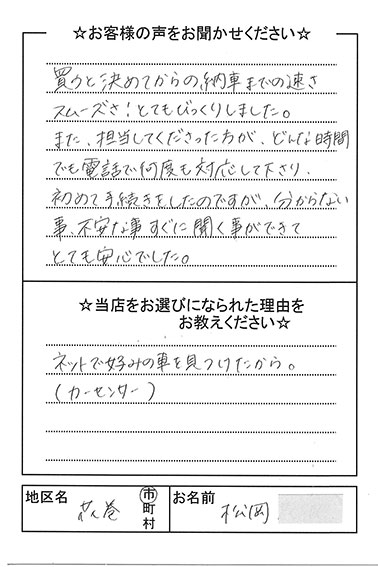 ☆お客様の声をお聞かせください☆
買うと決めてからの納車までの速さ
スムーズさ!とてもびっくりしました。
また、担当してくださった方が、どんな時間
でも電話で何度も対応して下さり、
初めて手続きをしたのですが、分からない
事、不安な事すぐに聞く事ができて
とても安心でした。
☆当店をお選びになられた理由を
お教えください☆
ネットで好みの車を見つけたから。
(カーセンター)
地区名
市
町
村
お名前 松岡